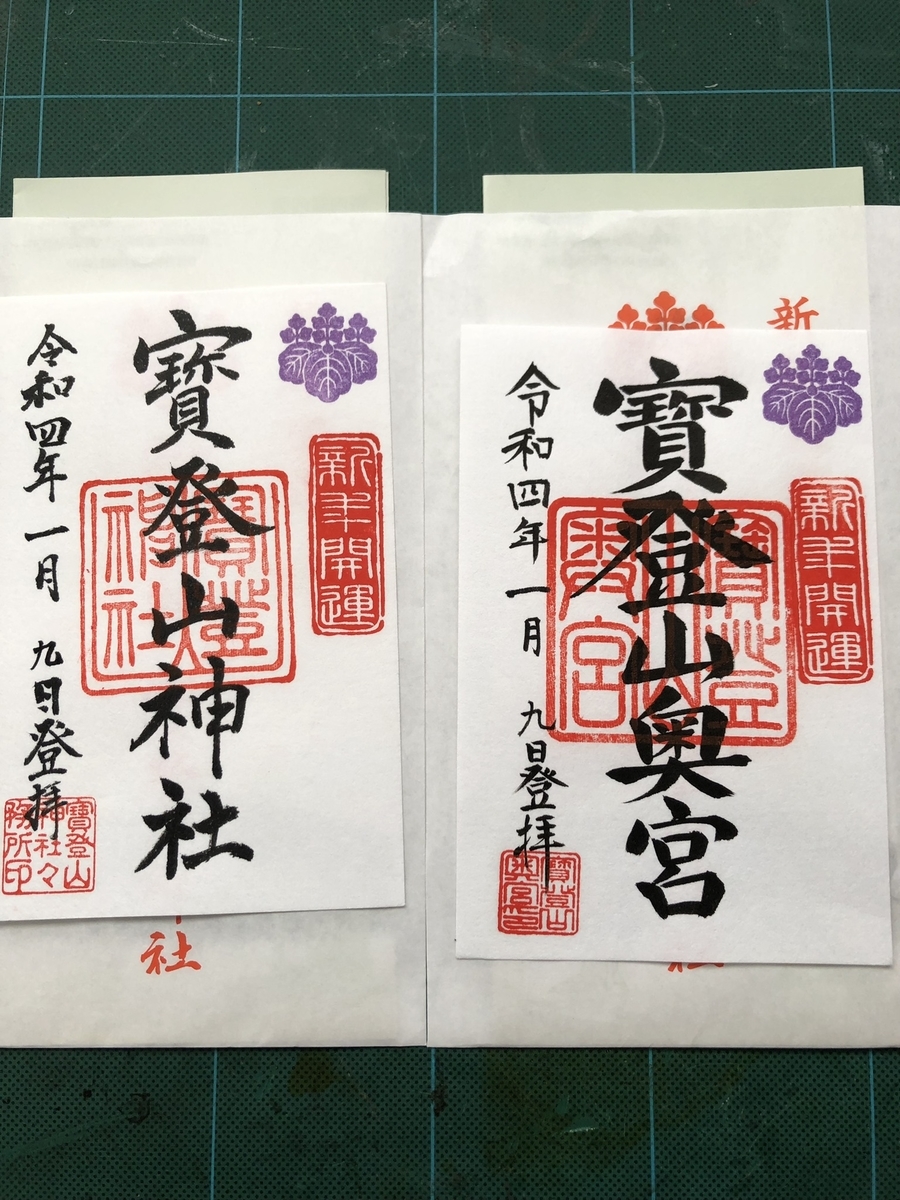 新年開運
寶登山神社
寶登山神社
令和四年一月九日登拝
寶登山
神社々
務所印
社
新
新年開運
寶登山奥宮
寶登山奥宮
令和四年一月九日登拝
寶登山
奥宮印